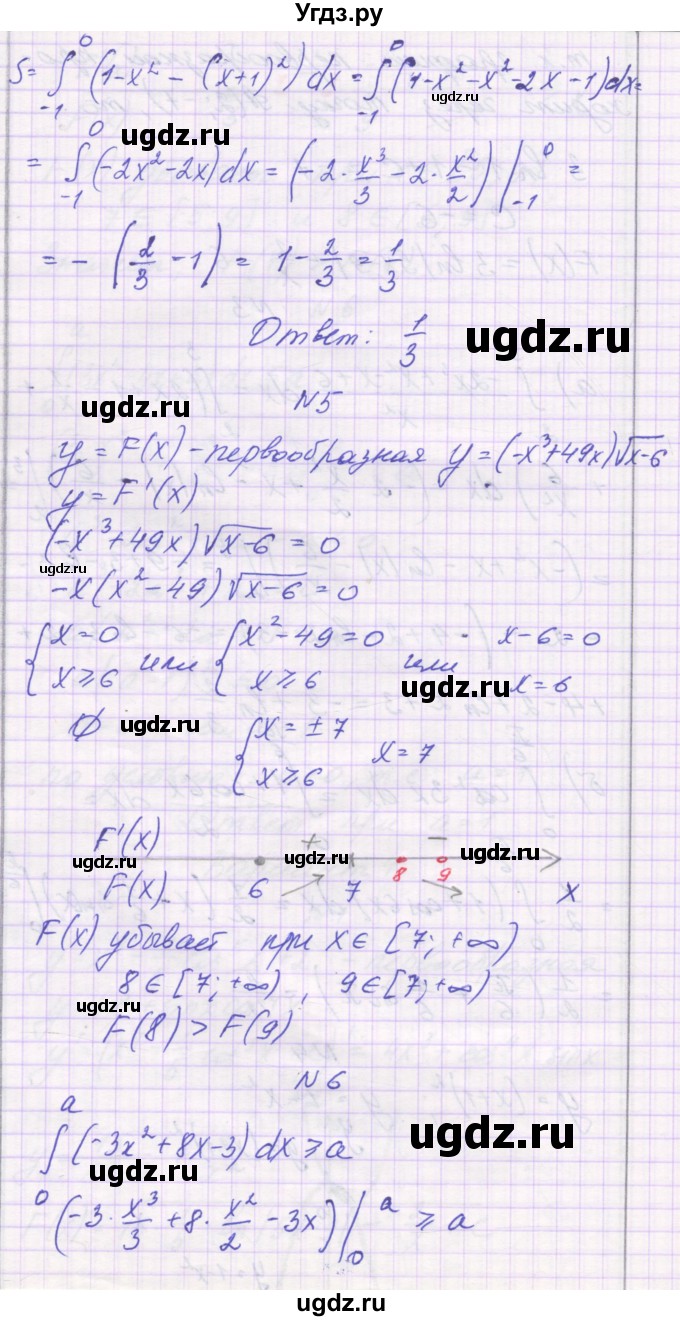 Угдз.ру
S = ∫₋₁⁰ (1-x² - (x+1)²) dx = ∫₋₁⁰ (1-x²-x²-2x-1)dx =
ugdz.ru
ugdz.ru
= ∫₋₁⁰ (-2x²-2x) dx = (-2·x³/3 - 2·x²/2) |₋₁⁰ =
= - (2/3 - 1) = 1 - 2/3 = 1/3
Ответ: 1/3
ugdz.ru
N5
ugdz.ru
y = F(x) - первообразная y = (-x³+49x)√x-6
y = F'(x)
ugdz.ru
(-x³+49x)√x-6 = 0
ugdz.ru
-x(x²-49)√x-6 = 0
{x=0 или {x²-49=0 или x-6=0
{x≥6 {x≥6 x=6
ugdz.ru
∅ {x=±7 x=7
ugdz.ru
{x≥6
F'(x) + -
ugdz.ru ugdz.ru ugdz.ru
8 9
F(x) 6 7 x
ugdz.ru
F(x) убывает при x∈[7;+∞)
ugdz.ru
8∈[7;+∞), 9∈[7;+∞)
ugdz.ru
F(8) > F(9)
N6
ugdz.ru
∫₀ᵃ (-3x²+8x-3) dx ≥ a
ugdz.ru
(-3·x³/3 + 8·x²/2 - 3x) |₀ᵃ ≥ a
ugdz.ru